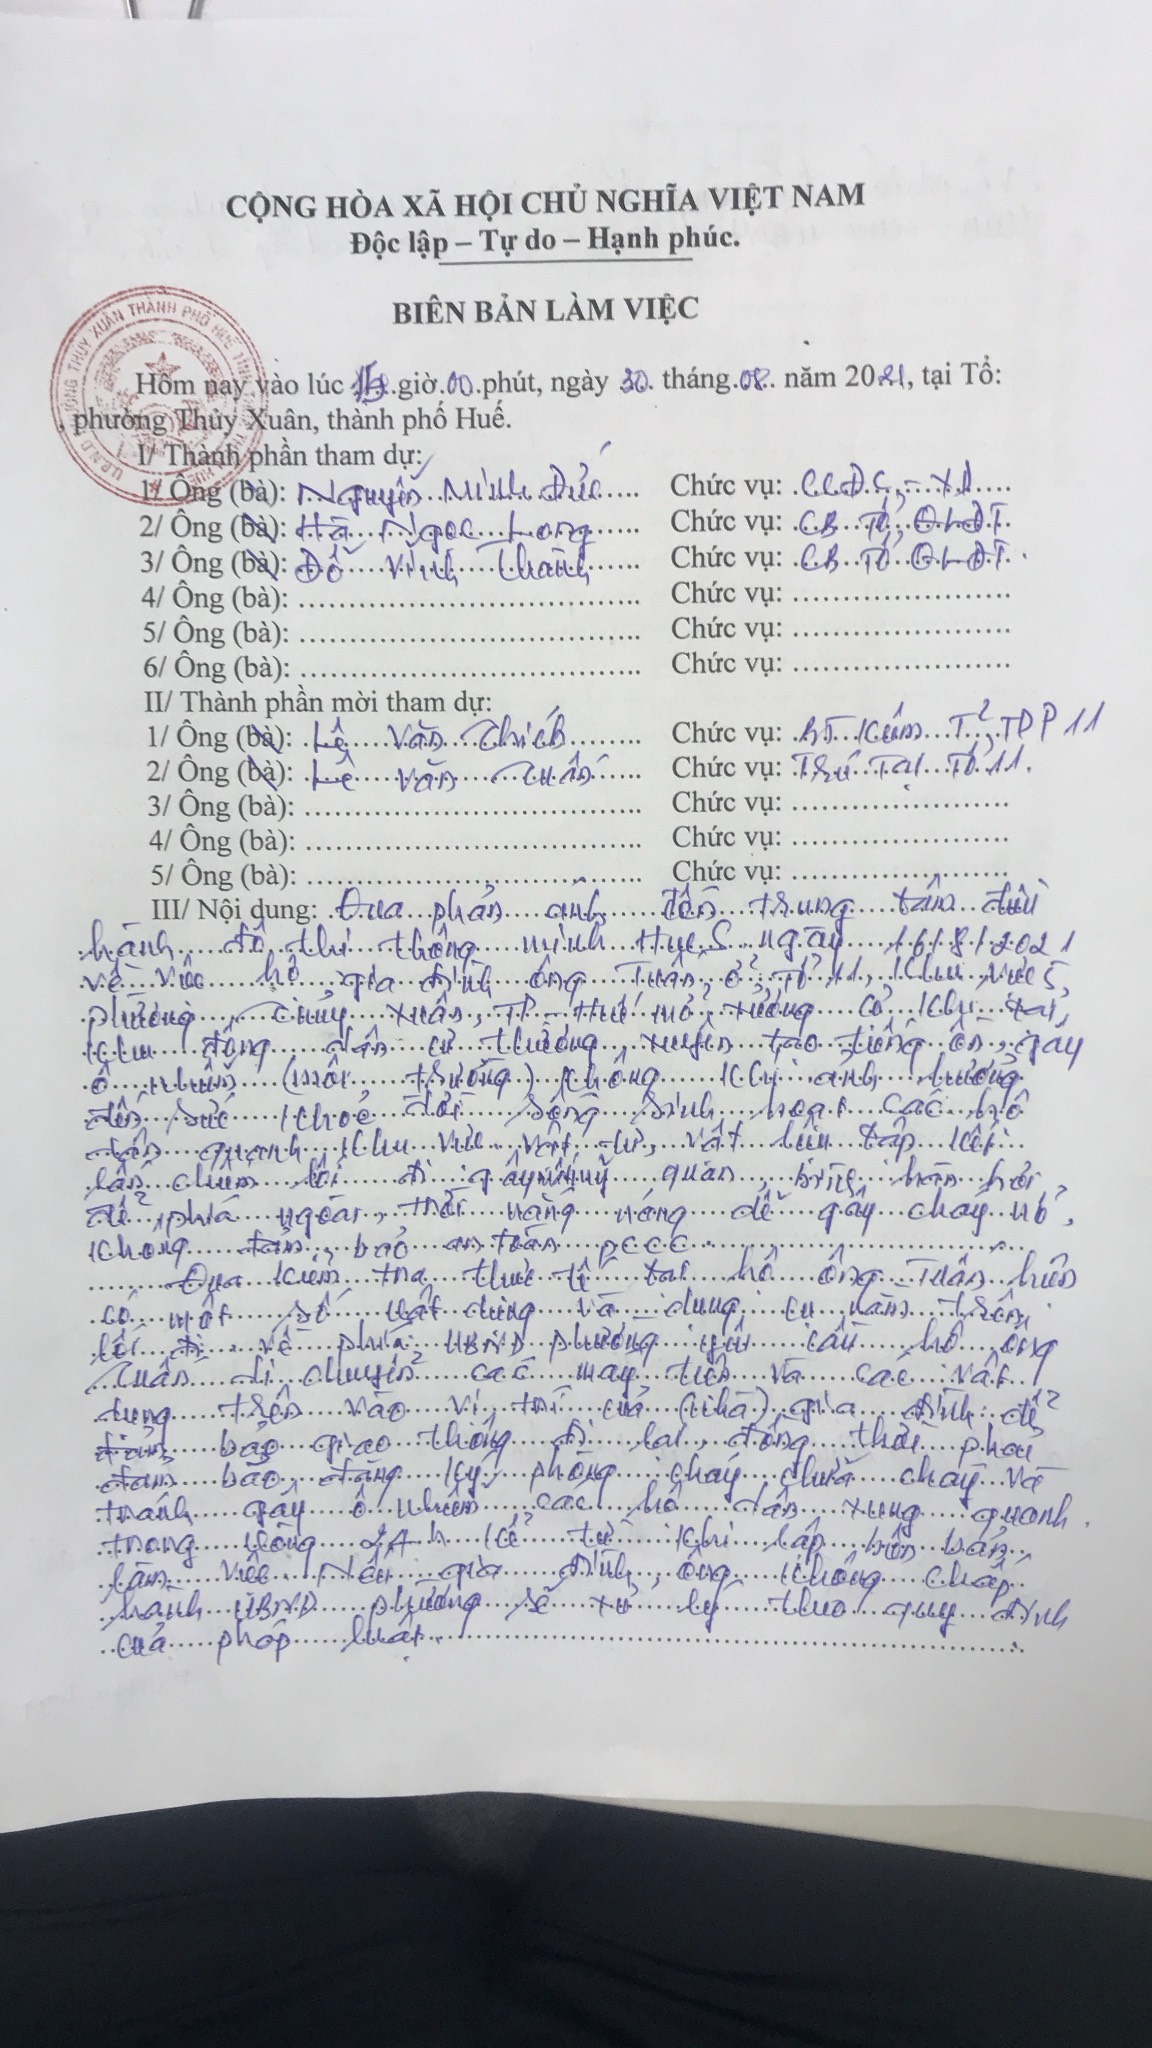 CỘNG HÒA XÃ HỘI CHỦ NGHĨA VIỆT NAM
Độc lập – Tự do – Hạnh phúc.
BIÊN BẢN LÀM VIỆC
Hôm nay vào lúc giờ 00 phút, ngày 30 tháng 08 năm 2021, tại Tổ:
, phường Thủy Xuân, thành phố Huế.
I/ Thành phần tham dự:
1/ Ông (bà): Nguyễn Minh Đức Chức vụ: CCĐC - XD
2/ Ông (bà): Hà Ngọc Long Chức vụ: CB Tổ QLĐT
3/ Ông (bà): Đỗ Vĩnh Thành Chức vụ: CB Tổ QLĐT
4/ Ông (bà): Chức vụ:
5/ Ông (bà): Chức vụ:
6/ Ông (bà): Chức vụ:
II/ Thành phần mời tham dự:
1/ Ông (bà): Lê Văn Chức vụ: BT kiêm TT TDP 11
2/ Ông (bà): Lê Văn Tuấn Chức vụ: Trú Tại Tổ 11.
3/ Ông (bà): Chức vụ:
4/ Ông (bà): Chức vụ:
5/ Ông (bà): Chức vụ:
III/ Nội dung: Qua phản ánh đến trung tâm điều
hành đô thị thông minh HueS ngày 16/8/2021
về việc hộ gia đình ông Tuấn ở Tổ 11, khu vực 5,
phường Thủy Xuân, TP Huế mở xưởng cơ khí tại
khu đông dân cư thường xuyên tạo tiếng ồn, gây
ô nhiễm (môi trường) không khí ảnh hưởng
đến sức khoẻ đời sống sinh hoạt các hộ
dân quanh khu vực vật tư, vật liệu tập kết
lấn chiếm lối đi gây mất mỹ quan, bình hàn hơi
để phía ngoài, trời nắng nóng dễ gây cháy nổ,
không đảm bảo an toàn PCCC
Qua kiểm tra thực tế tại hộ ông Tuấn hiện
có một số vật dùng và dụng cụ nằm trên
lối đi về phía UBND phường yêu cầu hộ ông
Tuấn di chuyển các máy tiện và các vật
dụng trên vào vị trí của (nhà) gia đình để
đảm bảo giao thông đi lại, đồng thời phải
đảm bảo đăng ký phòng cháy chữa cháy và
tránh gây ô nhiễm các hộ dân xung quanh.
trong vòng 24h kể từ khi lập biên bản
làm việc. Nếu gia đình ông không chấp
hành UBND phường sẽ xử lý theo quy định
của pháp luật.